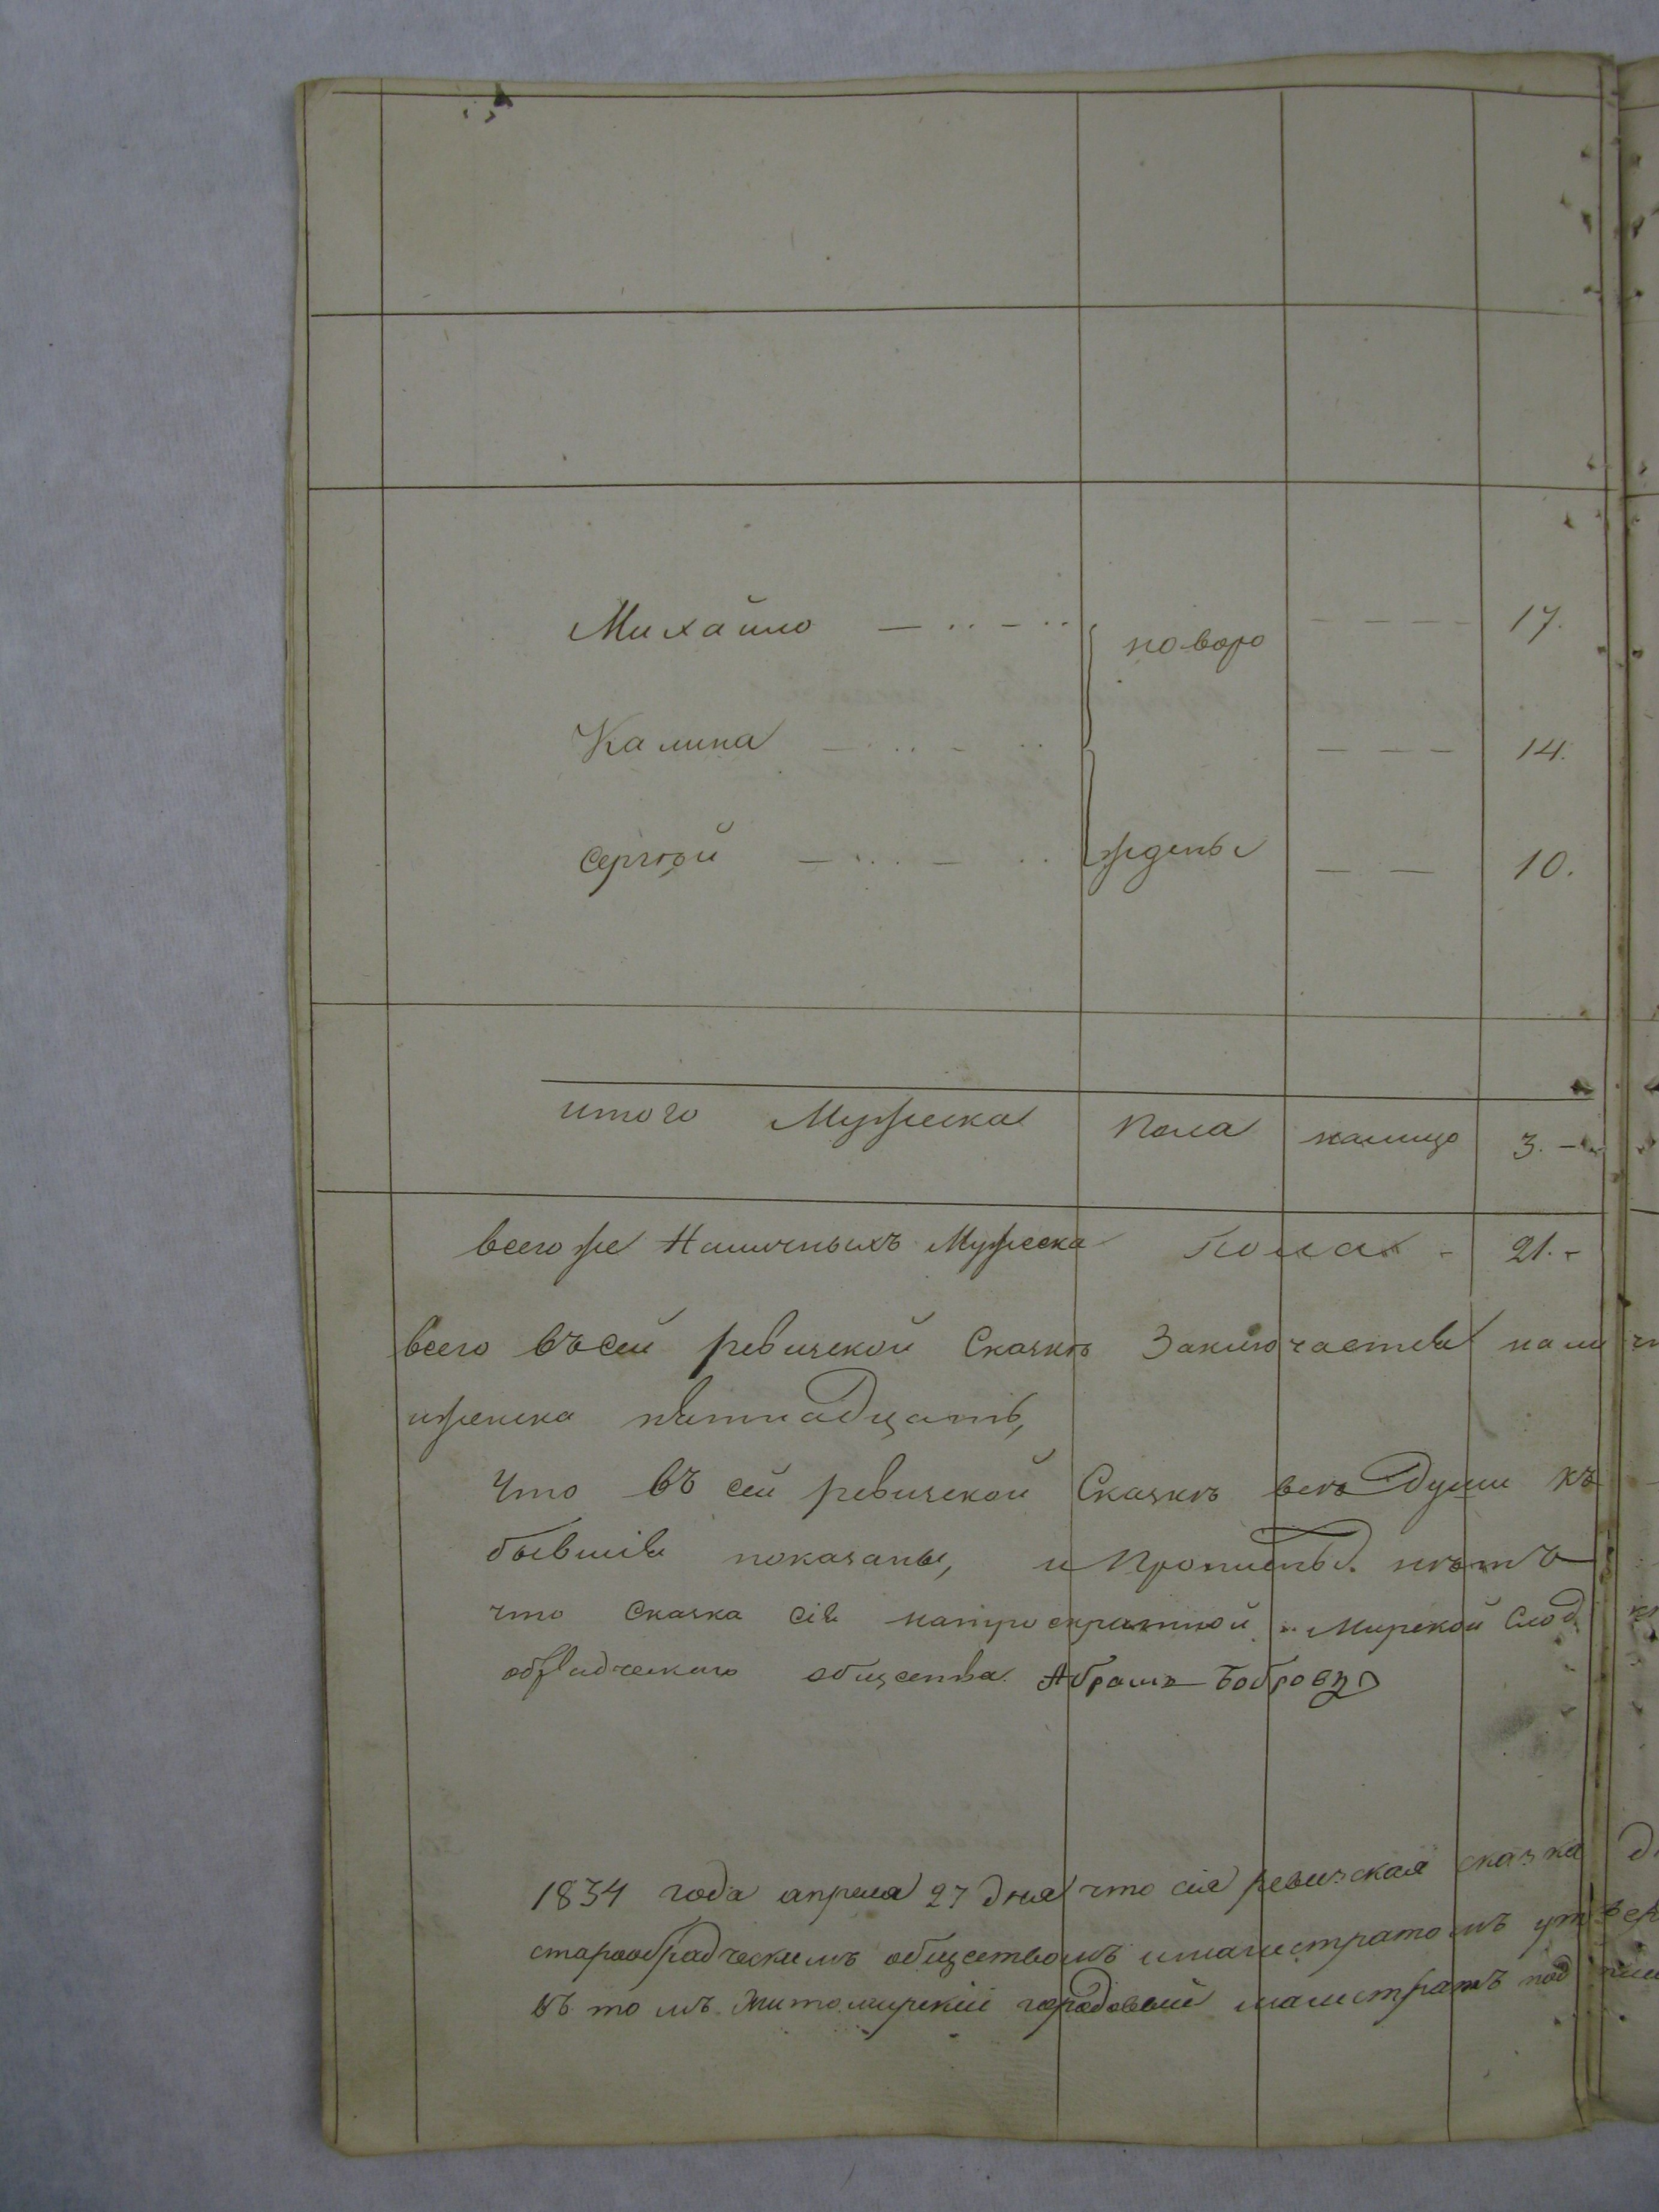 Михайло — .. — .. новоро — — — — 17.
Калина — .. — .. — — — 14.
Сергѣй — .. — .. жденые — — 10.
итого Мужеска Пола налицо 3. —
всего же Наличныхъ Мужеска Пола - 21. -
всего въ сей ревизской Сказкѣ Заключается нали
и женска пятнадцать,
Что въ сей ревизской Сказкѣ всѣ Души къ
бывшія показаны, и Прописныхъ нѣтъ
что Сказка сія Мирской
обрядческаго общества Абрамъ Бобровъ
1834 года апреля 27 Дня что сия ревизская сказка
старообрадческимъ обществомъ имагистратомъ утвер
въ томъ Житомирский городовый магистратъ под